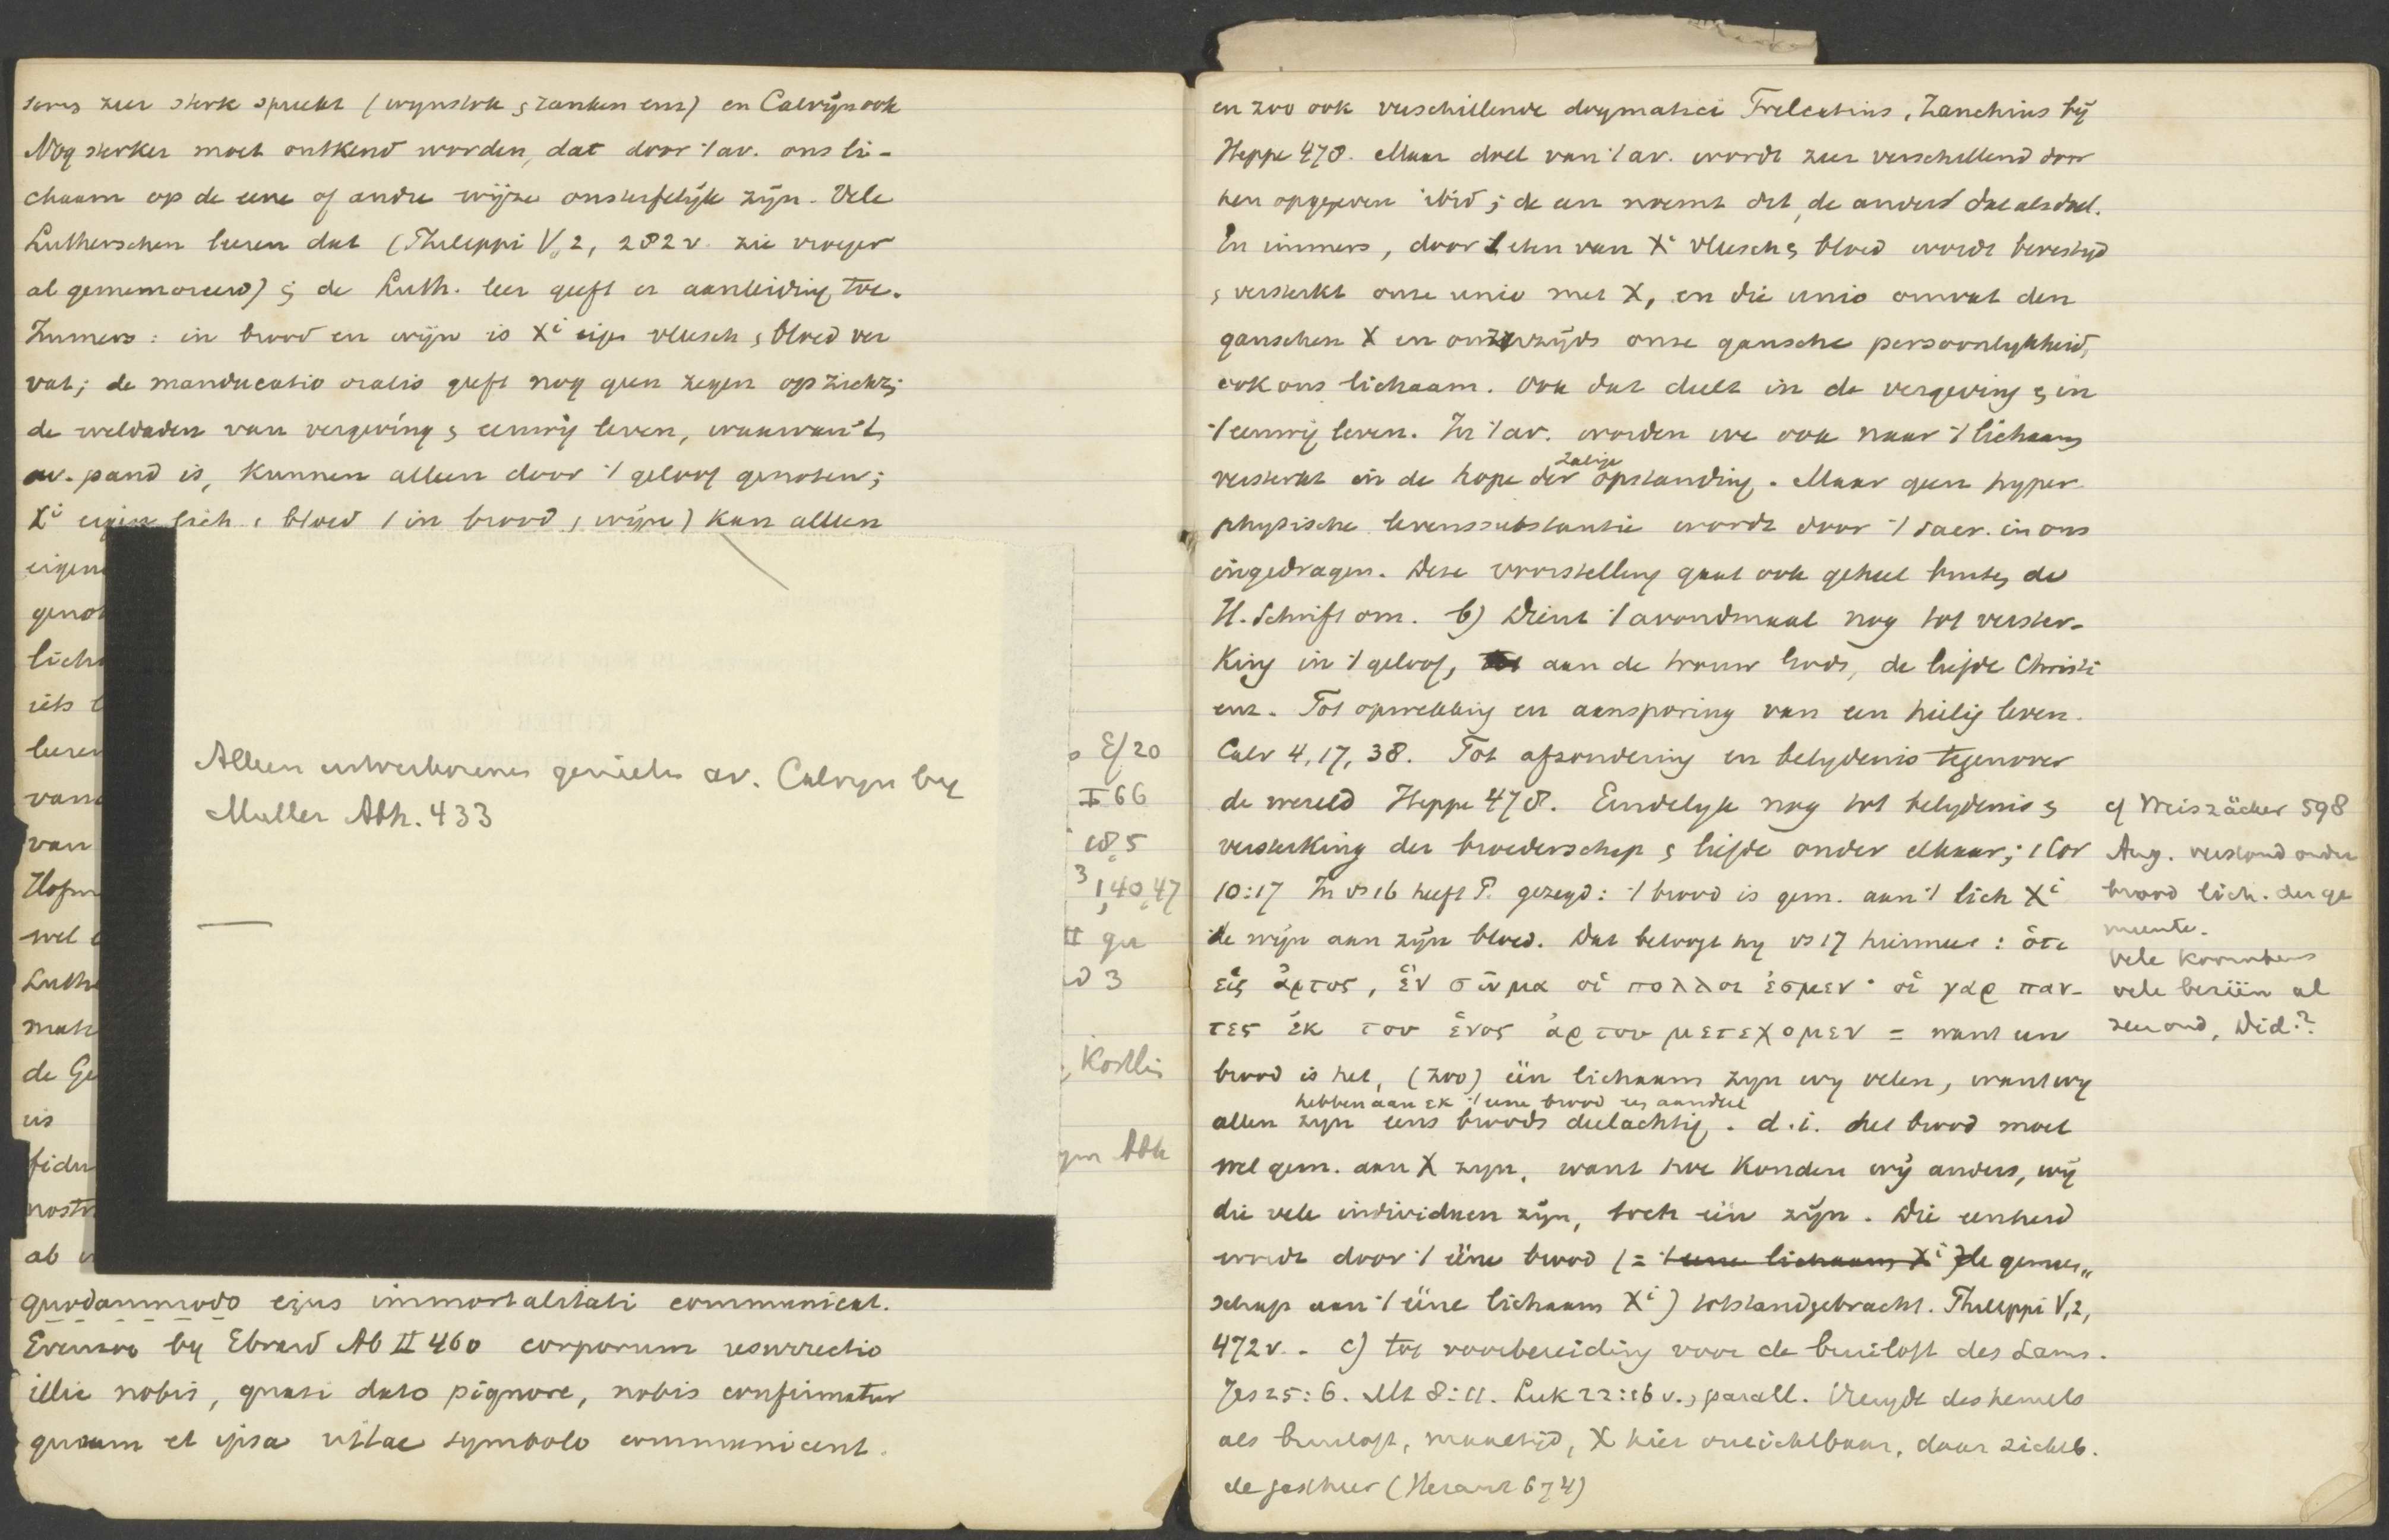 zeer sterk spreekt (wynstok & ranken enz) en Calvijn ook
Nog sterker moet ontkend worden, dat door 't av. ons li-
chaam op de eene of andre wijze onsterfelijk zijn. Vele
Lutherschen leeren dat (Philippi V,2, 282 v. zie vroeger
al gememoreerd) ; de Luth. leer geeft er aanleiding toe.
Immers : in brood en wijn is Xi eigen vleesch & bloed ver
vat; de manducatio oralis geeft nog geen zegen op zichz;
de weldaden van vergeving & eeuwig leven, waarvan 't
av. pand is, kunnen alleen door 't geloof genoten;
Xi eigen lich. & bloed (in brood & wijn) kan alleen
eigen
genot
licha
iets
leeren
van
van
Hofm
wel
Luthe
mat
de Ge
is
fidu
nostr
ab
quodammodo ejus immortalitati communicat.
by Ebrard Ab II 460 corporum resurrectio
illic nobis, quasi dato pignore, nobis confirmatur
quum et ipsa vitae symbolo communicent.
Alleen uitverkorenen genieten av. Calvyn by
Muller Abh. 433
E/20
I 66
18,5
3
1,40,47
II
3
Kostlin
Abh
en zoo ook verschillende dogmatici Trelcatius, Zanchius bij
Heppe 478. Maar doel van 't av. wordt zeer verschillend door
hen opgegeven ibid ; de een noemt dit, de ander dat als doel.
En immers, door 't eten van Xi vleesch & bloed wordt bevestigd
& versterkt onze unio met X, en die unio omvat den
ganschen X en onzerzijds onze gansche persoonlykheid,
ook ons lichaam. Ook dat deelt in de vergeving & in
't eeuwig leven. In 't av. worden we ook naar 't lichaam
zalige
versterkt in de hope der opstanding. Maar geen hyper
physische levenssubstantie wordt door 't sacr. in ons
ingedragen. Deze voorstelling gaat ook geheel buiten de
H. Schrift om. b) Dient 't avondmaal nog tot verster-
king in 't geloof, aan de trouw Gods, de liefde Christi
enz. Tot opwekking en aansporing van een heilig leven.
Calv 4, 17, 38. Tot afzondering en belydenis tegenover
de wereld Heppe 478. Eindelyk nog tot belydenis &
versterking der broederschap & liefde onder elkaar; 1 Cor
10:17 In vs 16 heeft P. gezegd: 't brood is gem. aan 't lich Xi
de wijn aan zijn bloed. Dat betoogt hy vs 17 hiermee : ὁτι
εἱς ἀρτος, ἑν σωμα οἱ πολλοι ἐσμεν· οἱ γαρ παν-
τες ἐκ του ἑνος ἀρτου μετεχομεν = want een
brood is het, (zoo) één lichaam zyn wy velen, want wy
hebben aan εκ 't eene brood ons aandeel
allen zyn eens broods deelachtig. d.i. het brood moet
wel gem. aan X zyn, want hoe konden wij anders, wij
die vele individuen zijn, toch één zijn. Die eenheid
wordt door 't ééne brood (= 't eene lichaam Xi de gemeen„
schap aan 't ééne lichaam Xi) totstandgebracht. Philippi V,2,
472 v. - c) tot voorbereiding voor de bruiloft des Lams.
Jes 25:6. Mt 8:11. Luk 22:16 v. & parall. Vreugde des hemels
als bruiloft, maaltijd, X hier onzichtbaar, daar zichtb.
de gastheer (Heraut 674)
cf Weiszäcker 598
Aug. verstond onder
brood lich. der ge
meente.
Vele korrels
vele bezien al
zeer oud, Did.?